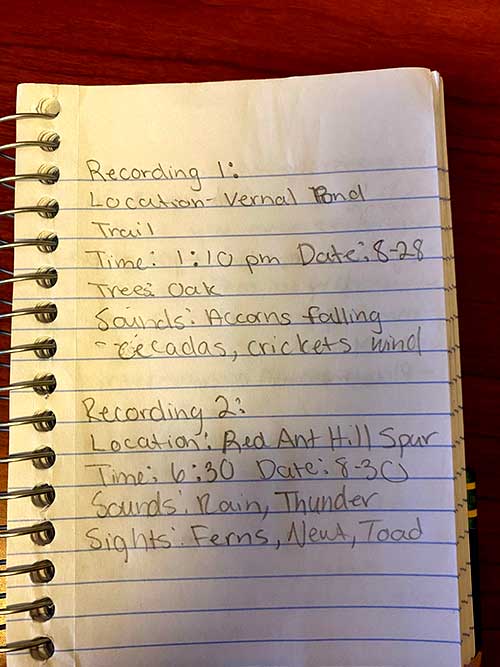 Recording 1:
Location- Vernal Pond
Trail
Time: 1:10 pm Date: 8-28
Trees: Oak
Sounds: Accorns falling
- cecadas, crickets wind
Recording 2:
Location: Red Ant Hill Spur
Time: 6:30 Date: 8-30
Sounds: Rain, Thunder
Sights: Ferns, Newt, Toad